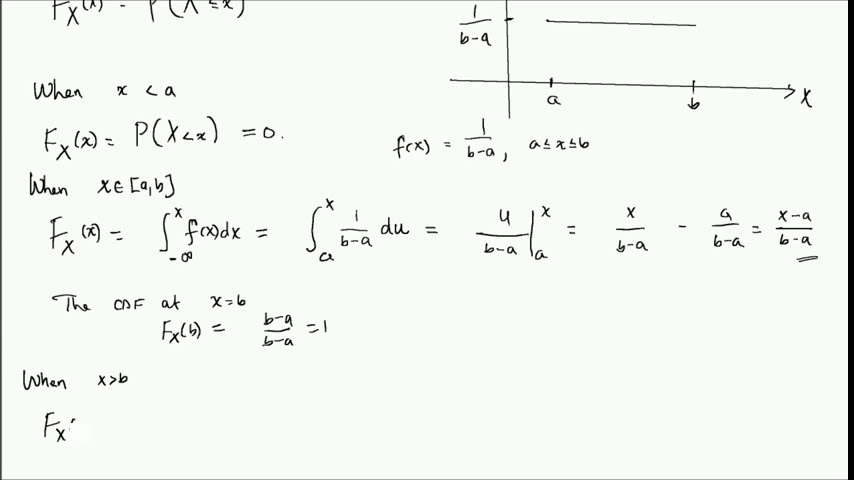 F_X(x) = P(X ≤ x)
1/(b-a)
a b X
When x < a
F_X(x) = P(X < x) = 0.
f(x) = 1/(b-a), a ≤ x ≤ b
When x ∈ [a,b]
F_X(x) = ∫_{-∞}^{x} f(x)dx = ∫_{a}^{x} 1/(b-a) du = u/(b-a) |_{a}^{x} = x/(b-a) - a/(b-a) = (x-a)/(b-a)
The CDF at x=b
F_X(b) = (b-a)/(b-a) = 1
When x>b
F_X